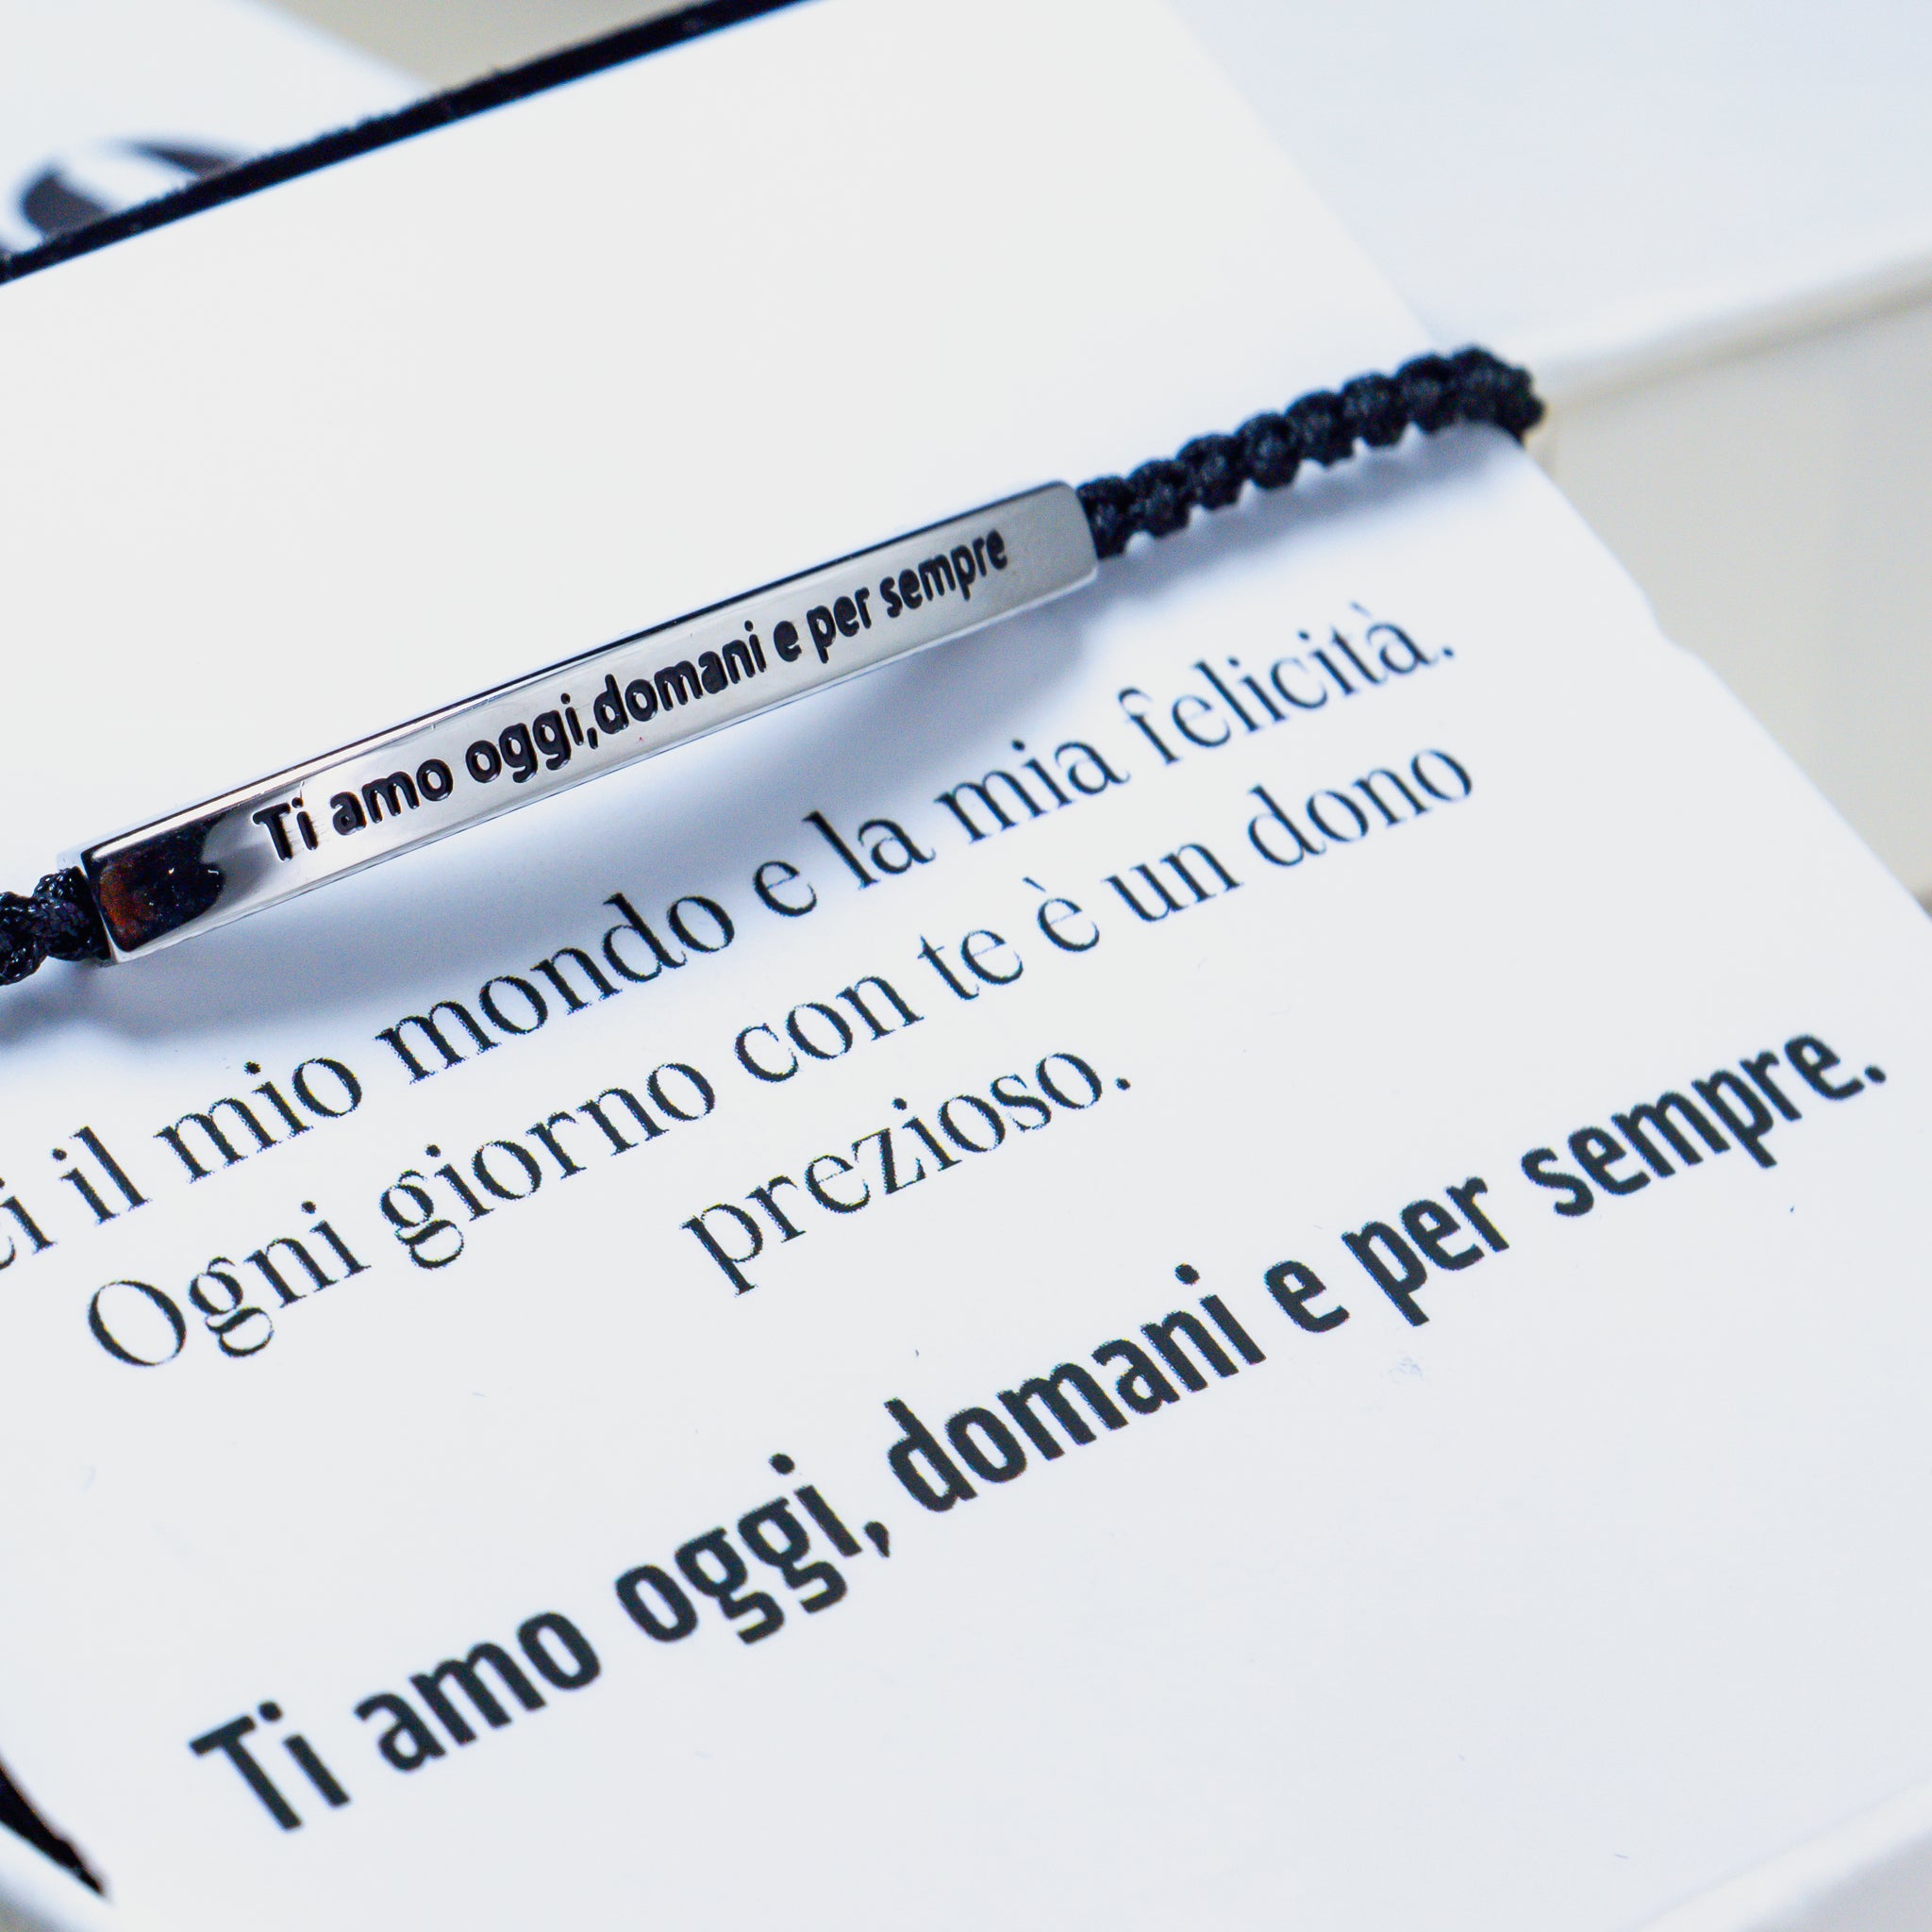 Ti amo oggi,domani e per sempre
il mio mondo e la mia felicità.
Ogni giorno con te è un dono
prezioso.
Ti amo oggi, domani e per sempre.